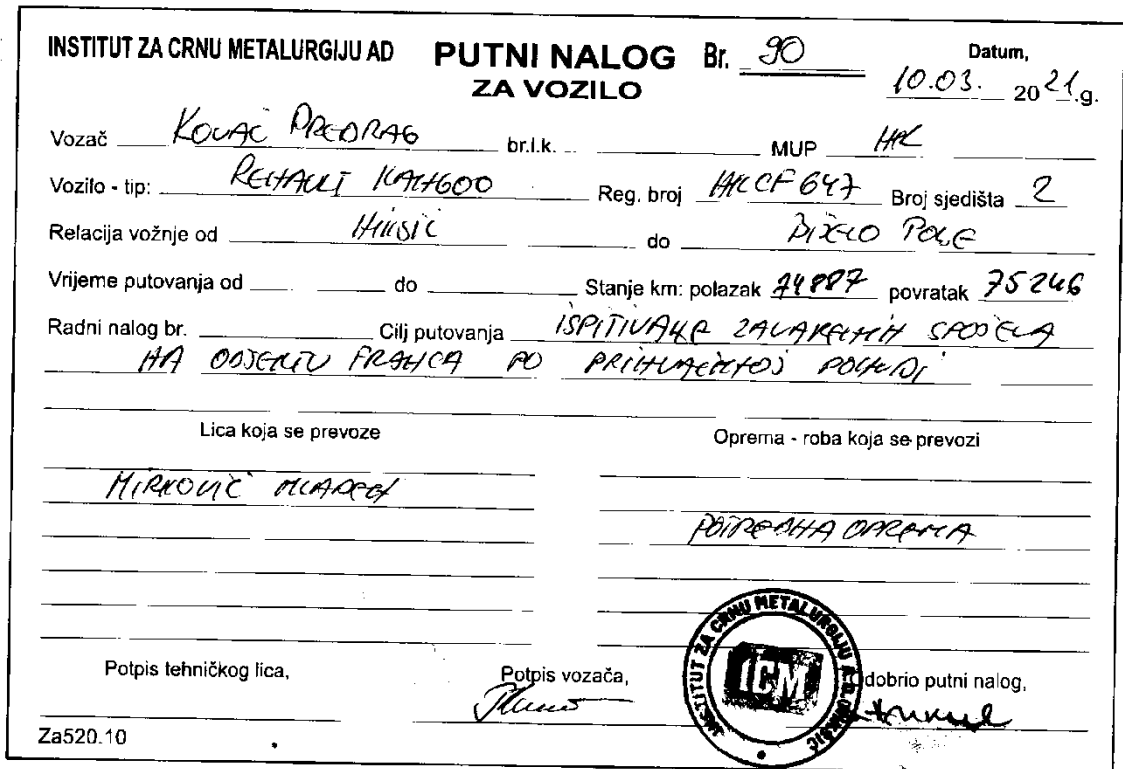 INSTITUT ZA CRNU METALURGIJU AD PUTNI NALOG Br. 90 Datum,
ZA VOZILO 10.03. 2021.g.
Vozač KOVAČ PREDRAG br.l.k. MUP NK
Vozilo - tip: RENAULT KANGOO Reg. broj NKCF647 Broj sjedišta 2
Relacija vožnje od NIKŠIĆ do BIJELO POLJE
Vrijeme putovanja od do Stanje km: polazak 74887 povratak 75246
Radni nalog br. Cilj putovanja ISPITIVANJE ZAVARENIH SPOJEVA
NA OBJEKTU FRANCA PO PRIHVAĆENOJ PONUDI
Lica koja se prevoze Oprema - roba koja se prevozi
MIRKOVIĆ MLADEN
POTREBNA OPREMA
INSTITUT ZA CRNU METALURGIJU A.D. NIKŠIĆ
ICM
Potpis tehničkog lica, Potpis vozača, dobrio putni nalog,
Za520.10